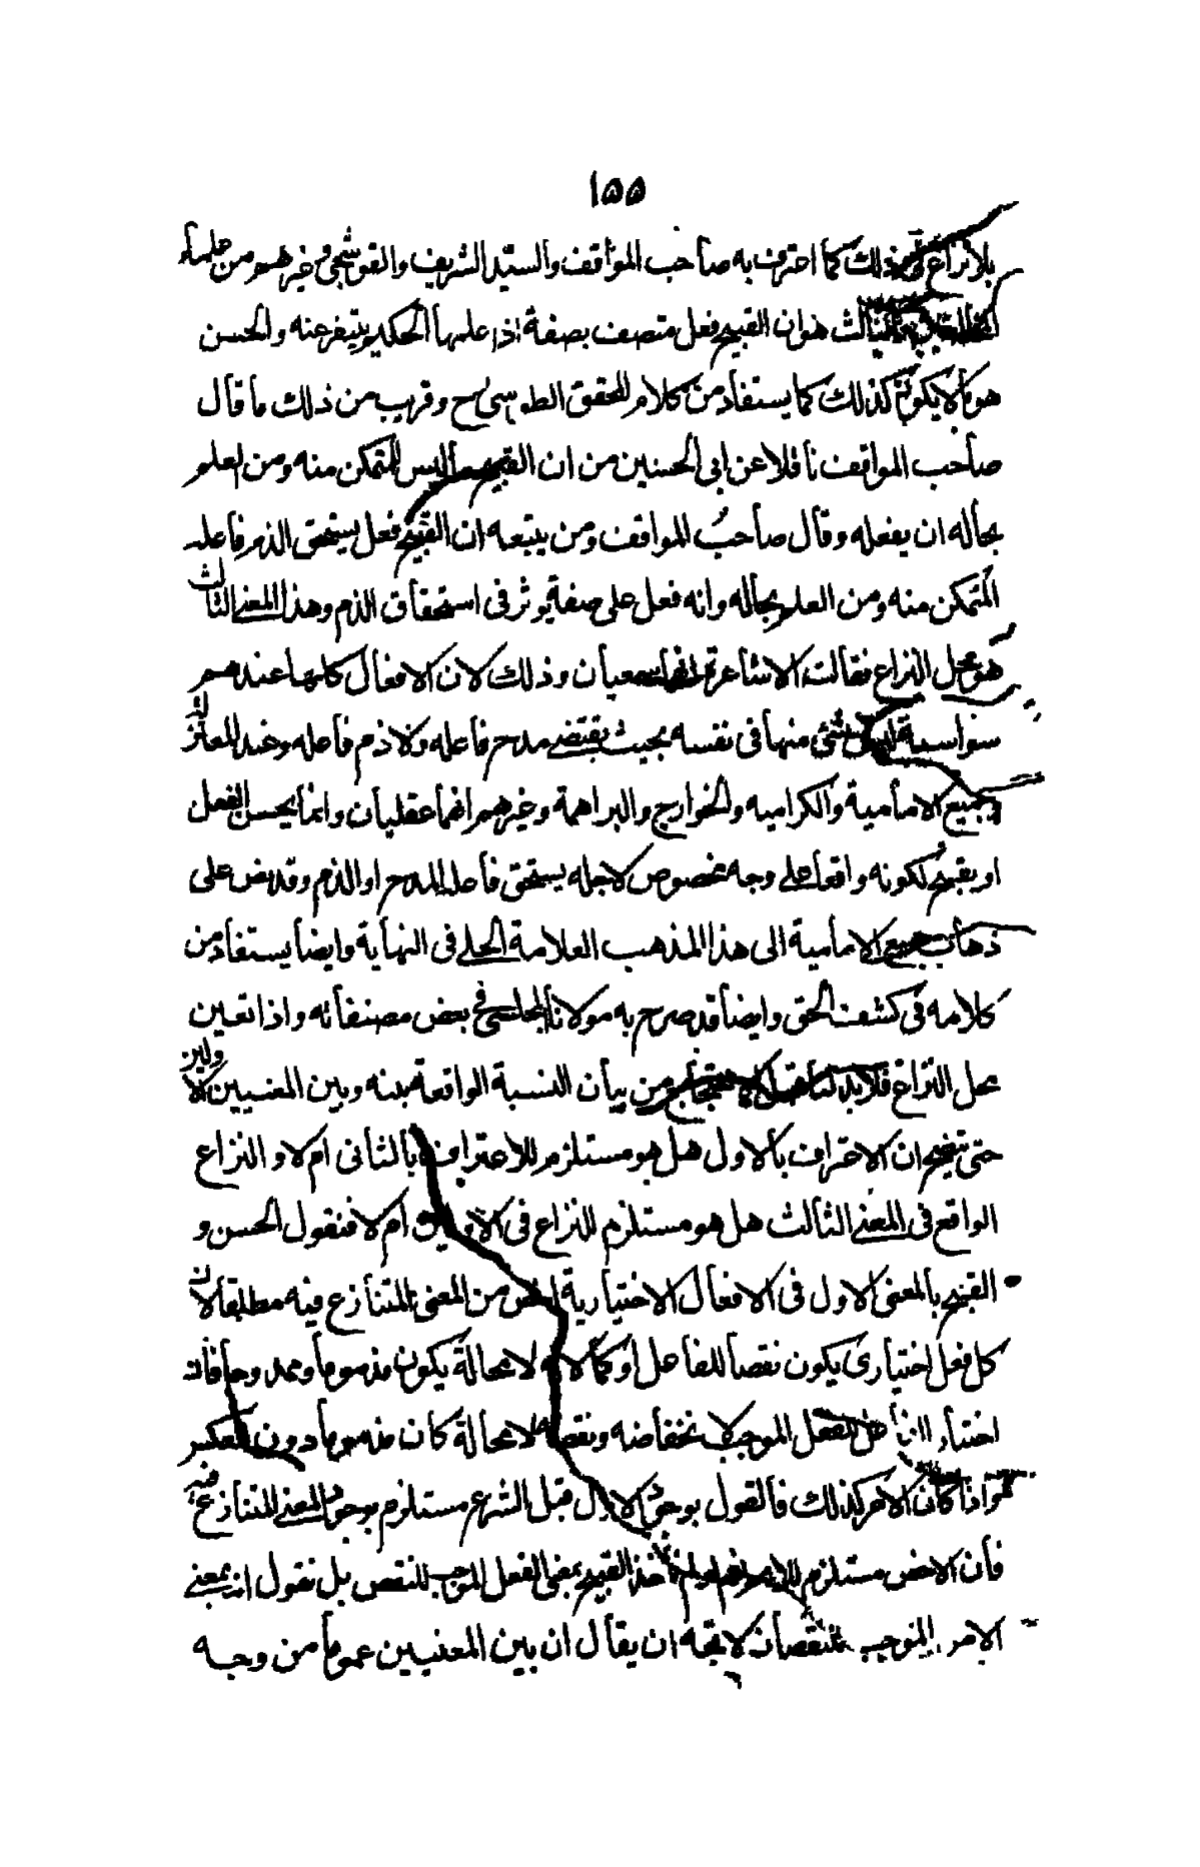 ١٥٥
بلا نزاع في ذلك كما اعترف به صاحب المواقف والسيد الشريف والقوشجي وغيرهم من علماء
الثالث هو ان القبيح فعل متصف بصفة اذا علمها الحكيم يتنفر عنه والحسن
هو ما لا يكون كذلك كما يستفاد من كلام المحقق الطوسي رح وقريب من ذلك ما قال
صاحب المواقف ناقلا عن ابي الحسين من ان القبيح ما ليس للمتمكن منه ومن العلم
بحاله ان يفعله وقال صاحب المواقف ومن يتبعه ان القبيح فعل يستحق الذم فاعله
المتمكن منه ومن العلم بحاله وانه فعل على صفة يوثر في استحقاق الذم وهذا المعنى الثالث
هو محل النزاع فقالت الاشاعرة انهما سمعيان وذلك لان الافعال كلها عندهم
سواسية ليس شئ منها في نفسه بحيث يقتضي مدح فاعله ولا ذم فاعله وعند المعتزلة
وجميع الامامية والكرامية والخوارج والبراهمة وغيرهم انهما عقليان وانما يحسن الفعل
او يقبح لكونه واقعا على وجه مخصوص لاجله يستحق فاعله المدح او الذم وقد نص على
ذهاب جميع الامامية الى هذا المذهب العلامة الحلي في النهاية وايضا يستفاد من
كلامه في كشف الحق وايضا قد صرح به مولانا المجلسي في بعض مصنفاته واذا تعين
محل النزاع فلا بد لنا قبل الاحتجاج من بيان النسبة الواقعة بينه وبين المعنيين الاولين
حتى يتضح ان الاعتراف بالاول هل هو مستلزم للاعتراف بالثاني ام لا و النزاع
الواقع في المعنى الثالث هل هو مستلزم للنزاع في الاولين ام لا فنقول الحسن و
القبيح بالمعنى الاول في الافعال الاختيارية اخص من المعنى المتنازع فيه مطلقا لان
كل فعل اختياري يكون نقصا للفاعل او كمالا له لا محالة يكون مذموما وممدوحا فان
اختار الفاعل الفعل الموجب لانخفاضه ونقصه لا محالة كان مذموما دون العكس
واذا كان الامر كذلك فالقول بوجود الاول قبل الشرع مستلزم بوجود المعنى المتنازع فيه
فان الاخص مستلزم للاعم القبيح بمعنى الفعل الموجب للنقص بل نقول انه بمعنى
الامر الموجب للنقصان لا يتجه ان يقال ان بين المعنيين عموما من وجه